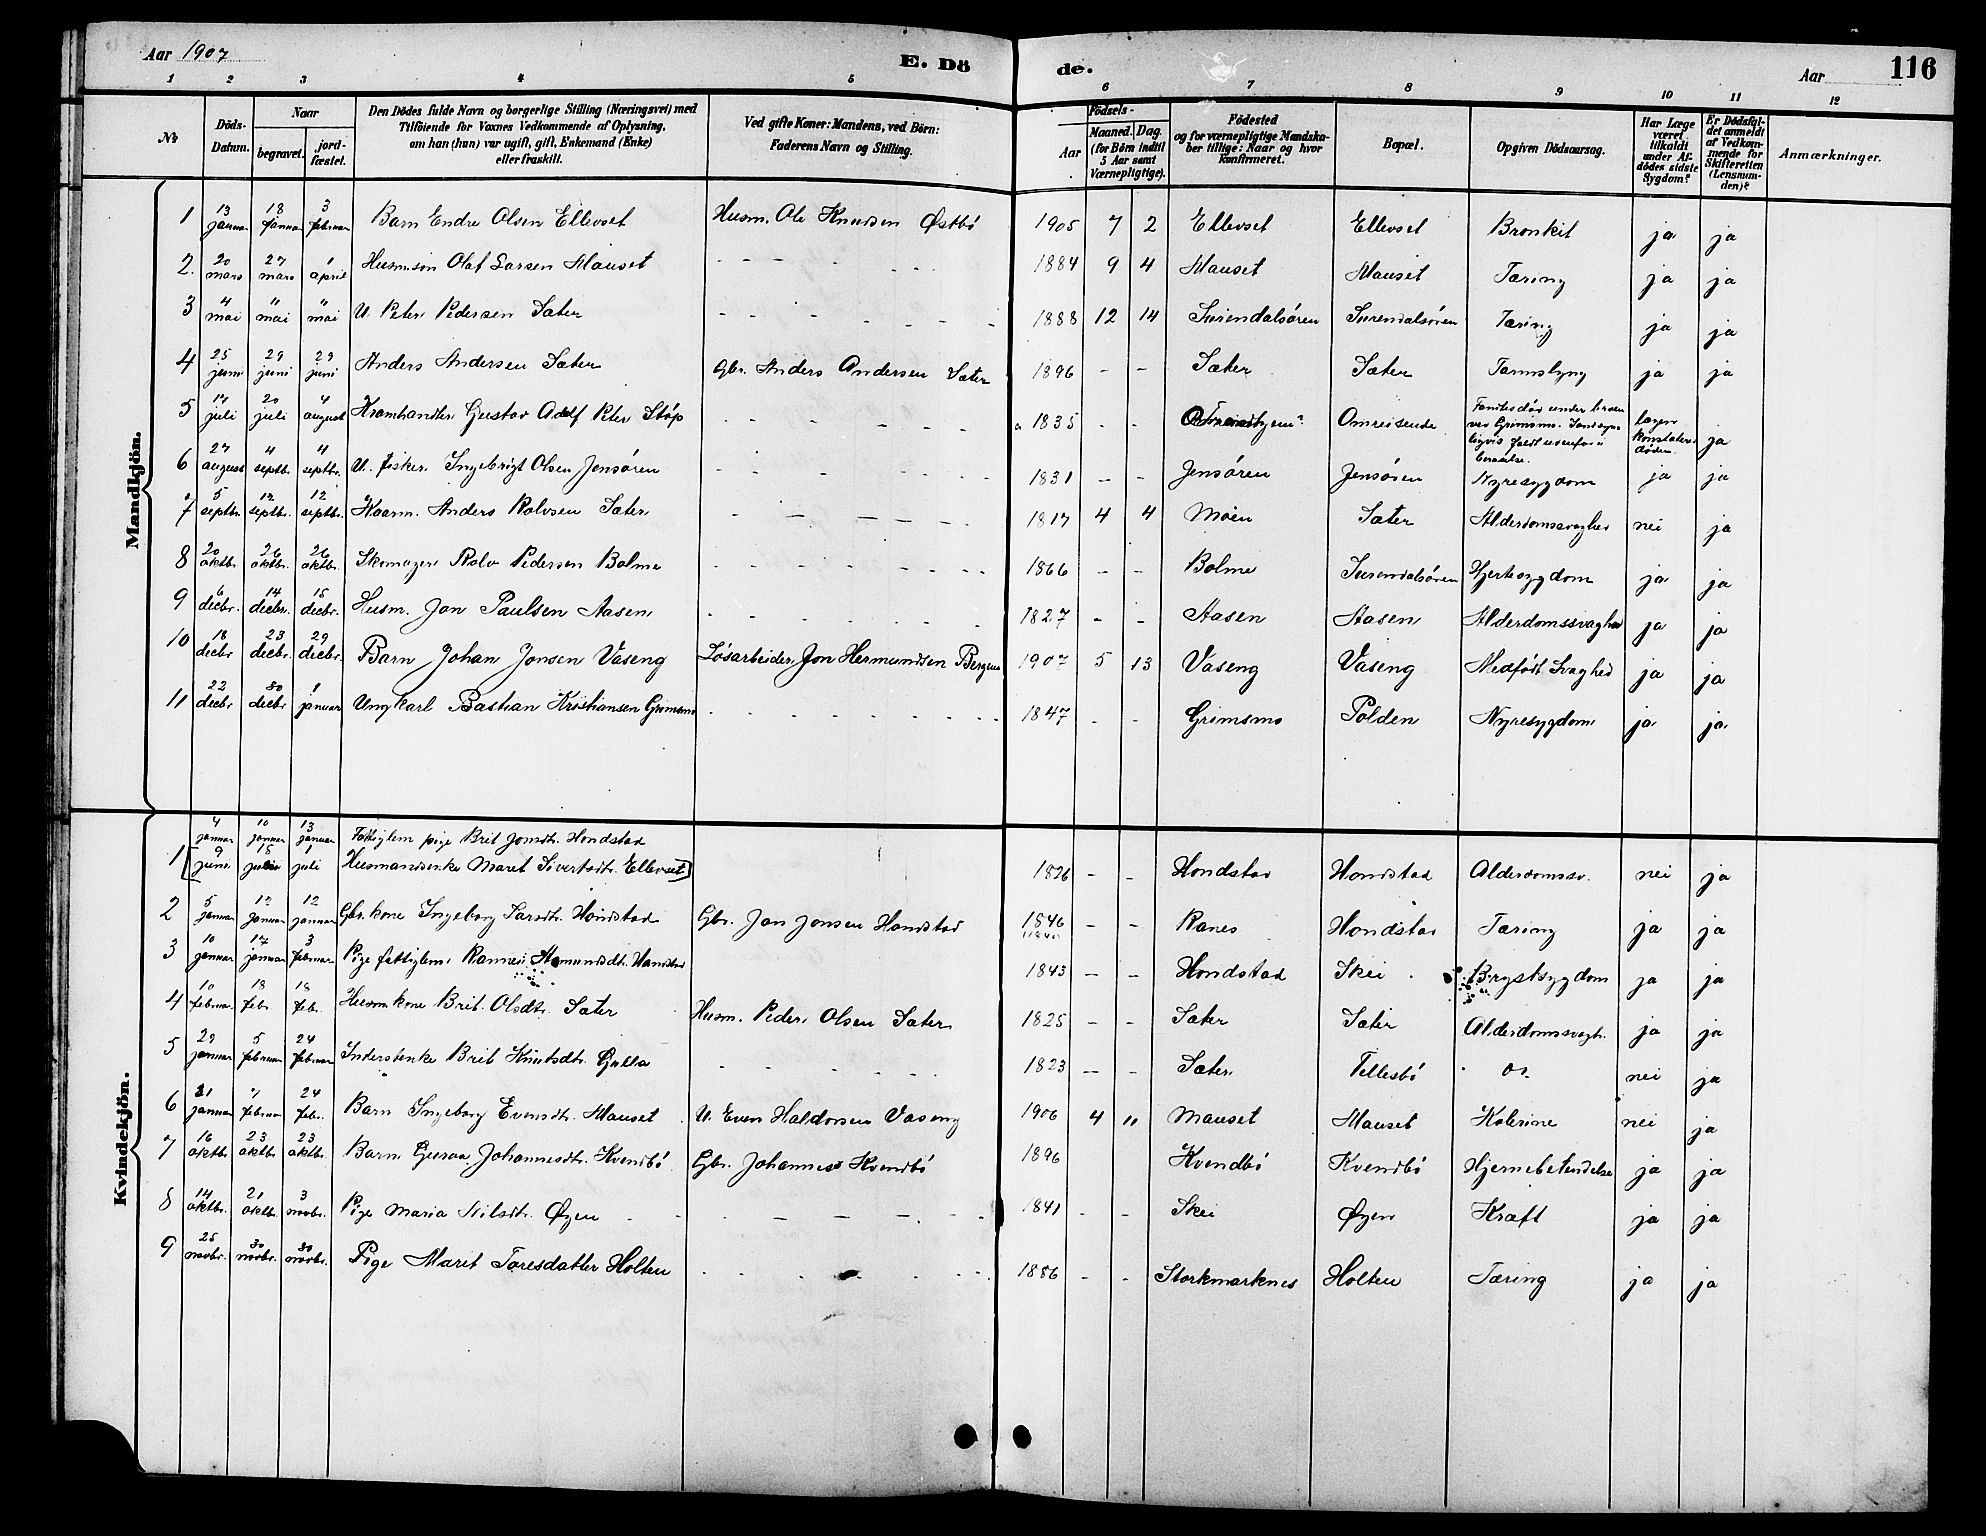 Aar 1907 E. Dö de. Aar 116
1 2 3 4 5 6 7 8 9 10 11 12
№ Döds-Datum. Naar begravet. jordfæstet. Den Dödes fulde Navn og borgerlige Stilling (Næringsvei) med Tilföiende for Voxnes Vedkommende af Oplysning, om han (hun) var ugift, gift, Enkemand (Enke) eller fraskilt. Ved gifte Koner: Mandens, ved Börn: Faderens Navn og Stilling. Födsels- Aar Maaned. Dag. (for Börn indtil 5 Aar samt Værnepligtige). Födested og for værnepligtige Mandskaber tillige: Naar og hvor konfirmeret. Bopæl. Opgiven Dödsaarsag. Har Læge været tilkaldt under Afdödes sidste Sygdom? Er Dödsfaldet anmeldt af Vedkommende for Skifteretten (Lensmanden)? Anmærkninger.
Mandkjön.
1 13 januar 18 januar 3 februar Barn Endre Olsen Ellevset Husm. Ole Knudsen Østbö 1905 7 2 Ellevset Ellevset Bronkit ja ja
2. 20 mars 27 mars 1 april Husm.søn Olaf Larsen Mauset 1884 9 4 Mauset Mauset Tæring ja ja
3 4 mai " mai " mai U. Peter Pedersen Sæter 1888 12 14 Surendalsören Surendalsören Tæring ja ja
4 25 juni 29 juni 29 juni Anders Andersen Sæter Gbr. Anders Andersen Sæter 1896 - - Sæter Sæter Tarmslyng ja ja
5 17 juli 20 juli 4 august Kramhandler Gustav Adolf Peter Støp 1835 - - Omreisende ja
6 27 august 4 septbr. 4 septbr. U. fisker Ingebrigt Olsen Jensøren 1831 - - Jensøren Jensøren Nyresygdom ja ja
7 5 septbr. 12 septbr. 12 septbr. Kaarm. Anders Rolvsen Sæter 1817 4 4 Moen Sæter Alderdomssvaghed nei ja
8 20 oktbr. 26 oktbr. 26 oktbr. Skomager Rolv Pedersen Bolme 1866 - - Bolme Surendalsören Hjertesygdom ja ja
9 6 decbr. 14 decbr. 15 decbr. Husm. Jon Paulsen Aasen 1827 - - Aasen Aasen Alderdomssvaghed ja ja
10 18 decbr 23 decbr. 29 decbr. Barn Johan Jonsen Vaseng Løsarbeider Jon Hermundsen Bergem 1907 5 13 Vaseng Vaseng Medfødt Svaghed ja ja
11 22 decbr 30 decbr 1 januar Ungkarl Bastian Kristiansen Grimsmo 1847 - - Grimsmo Polden Nyresygdom ja ja
Kvindekjön.
4 januar 10 januar 13 januar Fattiglem pige Brit Jonsdtr. Hondstad
1 [9 juni 15 juni 1 juli Husmandsenke Maret Sivertsdtr. Ellevset] 1826 - - Hondstad Hondstad Alderdomssv. nei ja
2 5 januar 12 januar 12 januar Gbr. kone Ingeborg Larsdtr. Hondstad Gbr. Jon Jonsen Hondstad 1846 - - Ranes Hondstad Tæring ja ja
3 10 januar 17 januar 3 februar Pige fattiglem 1843 - - Hondstad Skei Brystsygdom ja ja
4 10 februar 18 febr. 18 febr. Husm.kone Brit Olsdtr. Sæter Husm. Peder Olsen Sæter 1825 - - Sæter Sæter Alderdomssvagh. ja ja
5 29 januar 5 februar 24 februar Inderstenke Brit Knutsdtr. Gulla 1823 - - Sæter Tellesbö do. nei ja
6 31 januar " februar 24 febr. Barn Ingeborg Evensdtr. Mauset U. Even Haldorsen Vaseng 1906 4 11 Mauset Mauset Kolerine nei ja
7 16 oktbr. 23 oktbr. 23 oktbr. Barn Guroa Johannesdtr. Kvendbö Gbr. Johannes Kvendbö 1896 Kvendbö Kvendbö Hjernebetendelse ja ja
8 14 oktbr. 21 oktbr. 3 novbr. Pige Maria Nilsdtr. Øyen 1841 - - Skei Øyen Kræft ja ja
9 25 novbr. 30 novbr. 30 novbr. Pige Marit Toresdatter Holten 1886 - - Storkmarknes Holten Tæring ja ja